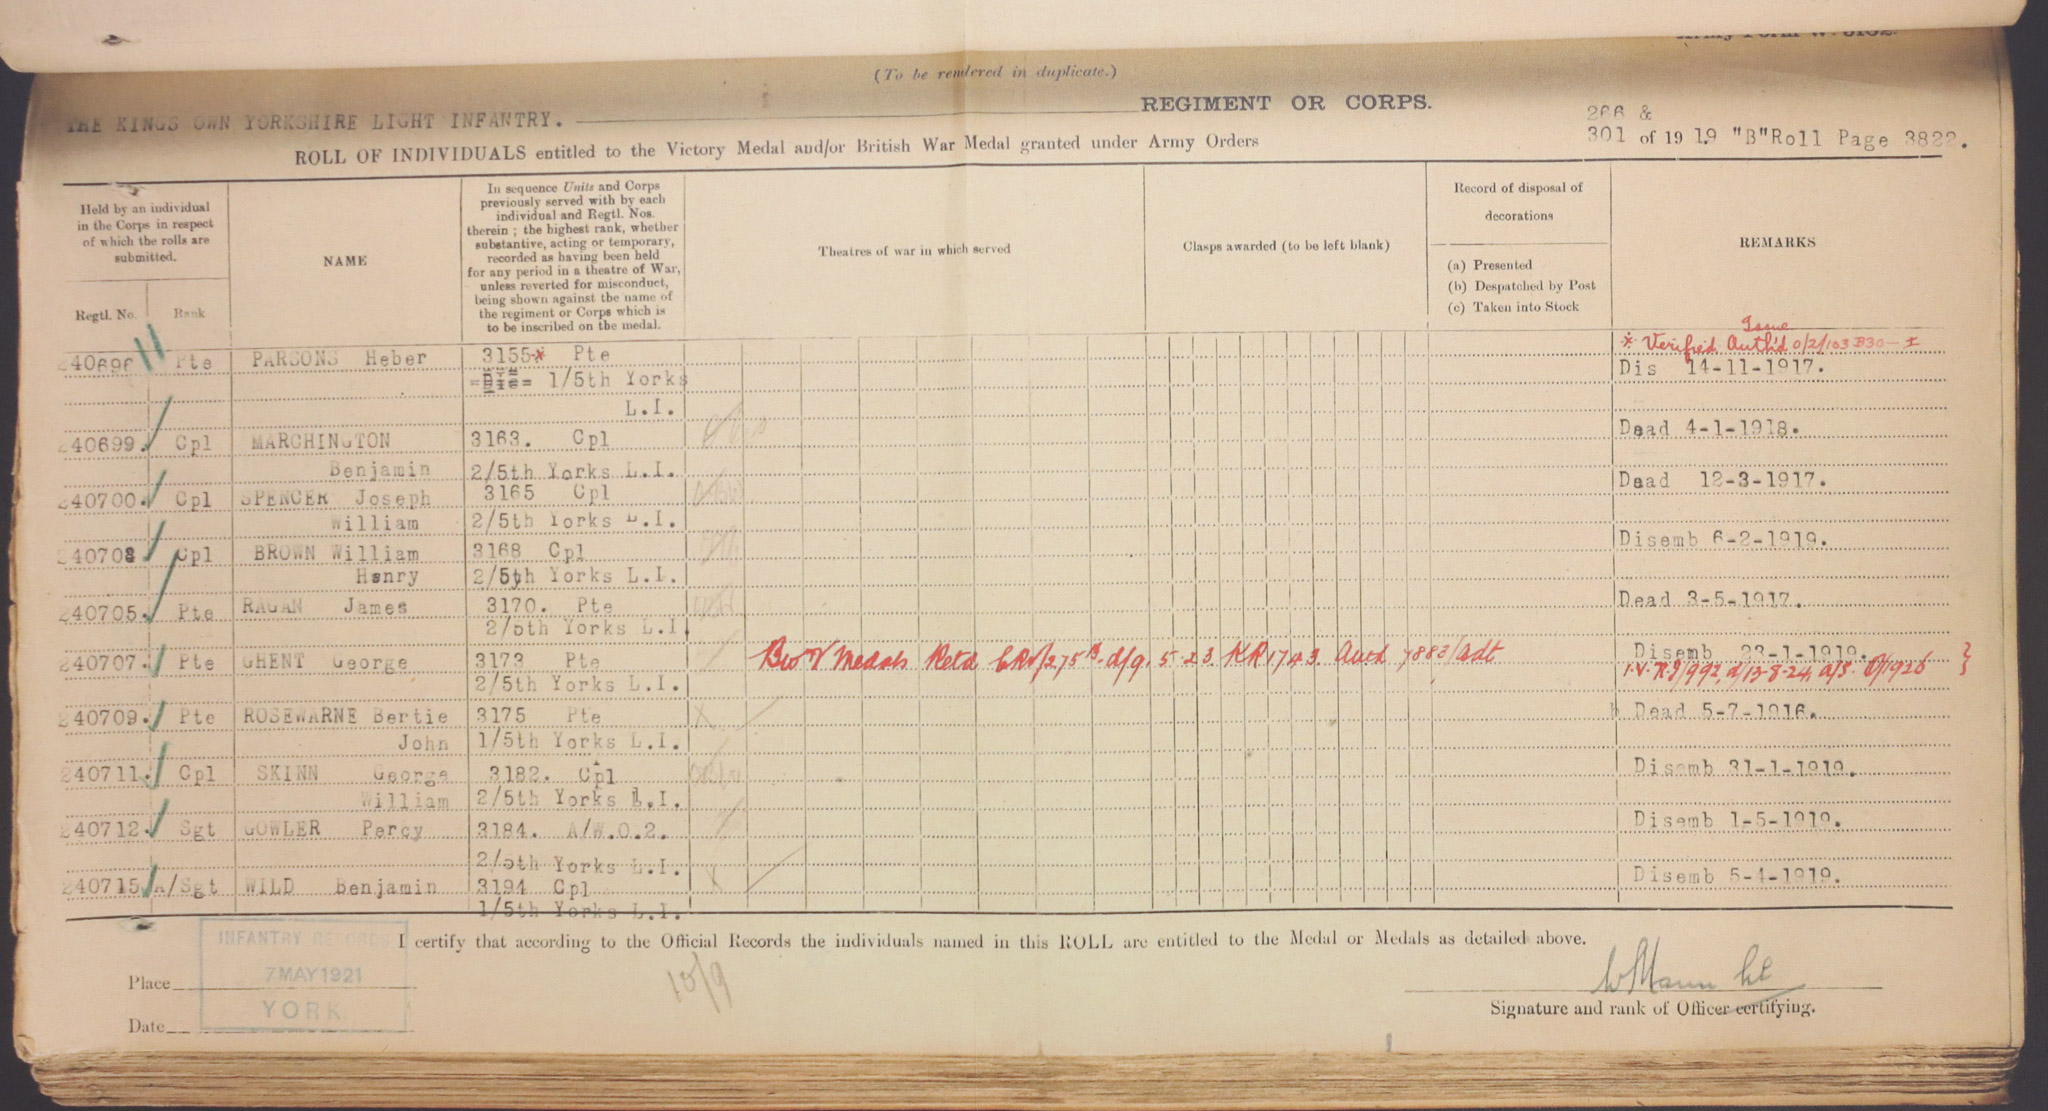 (To be rendered in duplicate.)
THE KINGS OWN YORKSHIRE LIGHT INFANTRY. REGIMENT OR CORPS.
266 &
ROLL OF INDIVIDUALS entitled to the Victory Medal and/or British War Medal granted under Army Orders 301 of 1919 "B" Roll Page 3822.
Held by an individual
in the Corps in respect
of which the rolls are
submitted.
Regtl. No. Rank
NAME
In sequence Units and Corps
previously served with by each
individual and Regtl. Nos.
therein ; the highest rank, whether
substantive, acting or temporary,
recorded as having been held
for any period in a theatre of War,
unless reverted for misconduct,
being shown against the name of
the regiment or Corps which is
to be inscribed on the medal.
Theatres of war in which served
Clasps awarded (to be left blank)
Record of disposal of
decorations
(a) Presented
(b) Despatched by Post
(c) Taken into Stock
REMARKS
Issue
* Verified Auth'd 0/2/103 B30-I
240696 Pte PARSONS Heber 3155* Pte Dis 14-11-1917.
1/5th Yorks
L.I.
240699. Cpl MARCHINGTON 3163. Cpl Dead 4-1-1918.
Benjamin 2/5th Yorks L.I.
240700. Cpl SPENCER Joseph 3165 Cpl Dead 12-3-1917.
William 2/5th Yorks L.I.
240703 Cpl BROWN William 3168 Cpl Disemb 6-2-1919.
Henry 2/5th Yorks L.I.
240705. Pte RAGAN James 3170. Pte Dead 3-5-1917.
2/5th Yorks L.I.
240707. Pte GHENT George 3173 Pte Medals Retd 5.23. KR 1743. Auth 7883/Adt Disemb 23-1-1919.
2/5th Yorks L.I. d/13-8-24
240709. Pte ROSEWARNE Bertie 3175 Pte X Dead 5-7-1916.
John 1/5th Yorks L.I.
240711. Cpl SKINN George 3182. Cpl Disemb 31-1-1919.
William 2/5th Yorks L.I.
240712. Sgt GOWLER Percy 3184. A/W.O.2. Disemb 1-5-1919.
2/5th Yorks L.I.
240715 A/Sgt WILD Benjamin 3194 Cpl X Disemb 5-4-1919.
1/5th Yorks L.I.
I certify that according to the Official Records the individuals named in this ROLL are entitled to the Medal or Medals as detailed above.
INFANTRY RECORDS
7 MAY 1921
YORK
Place
Date
10/9
Signature and rank of Officer certifying.